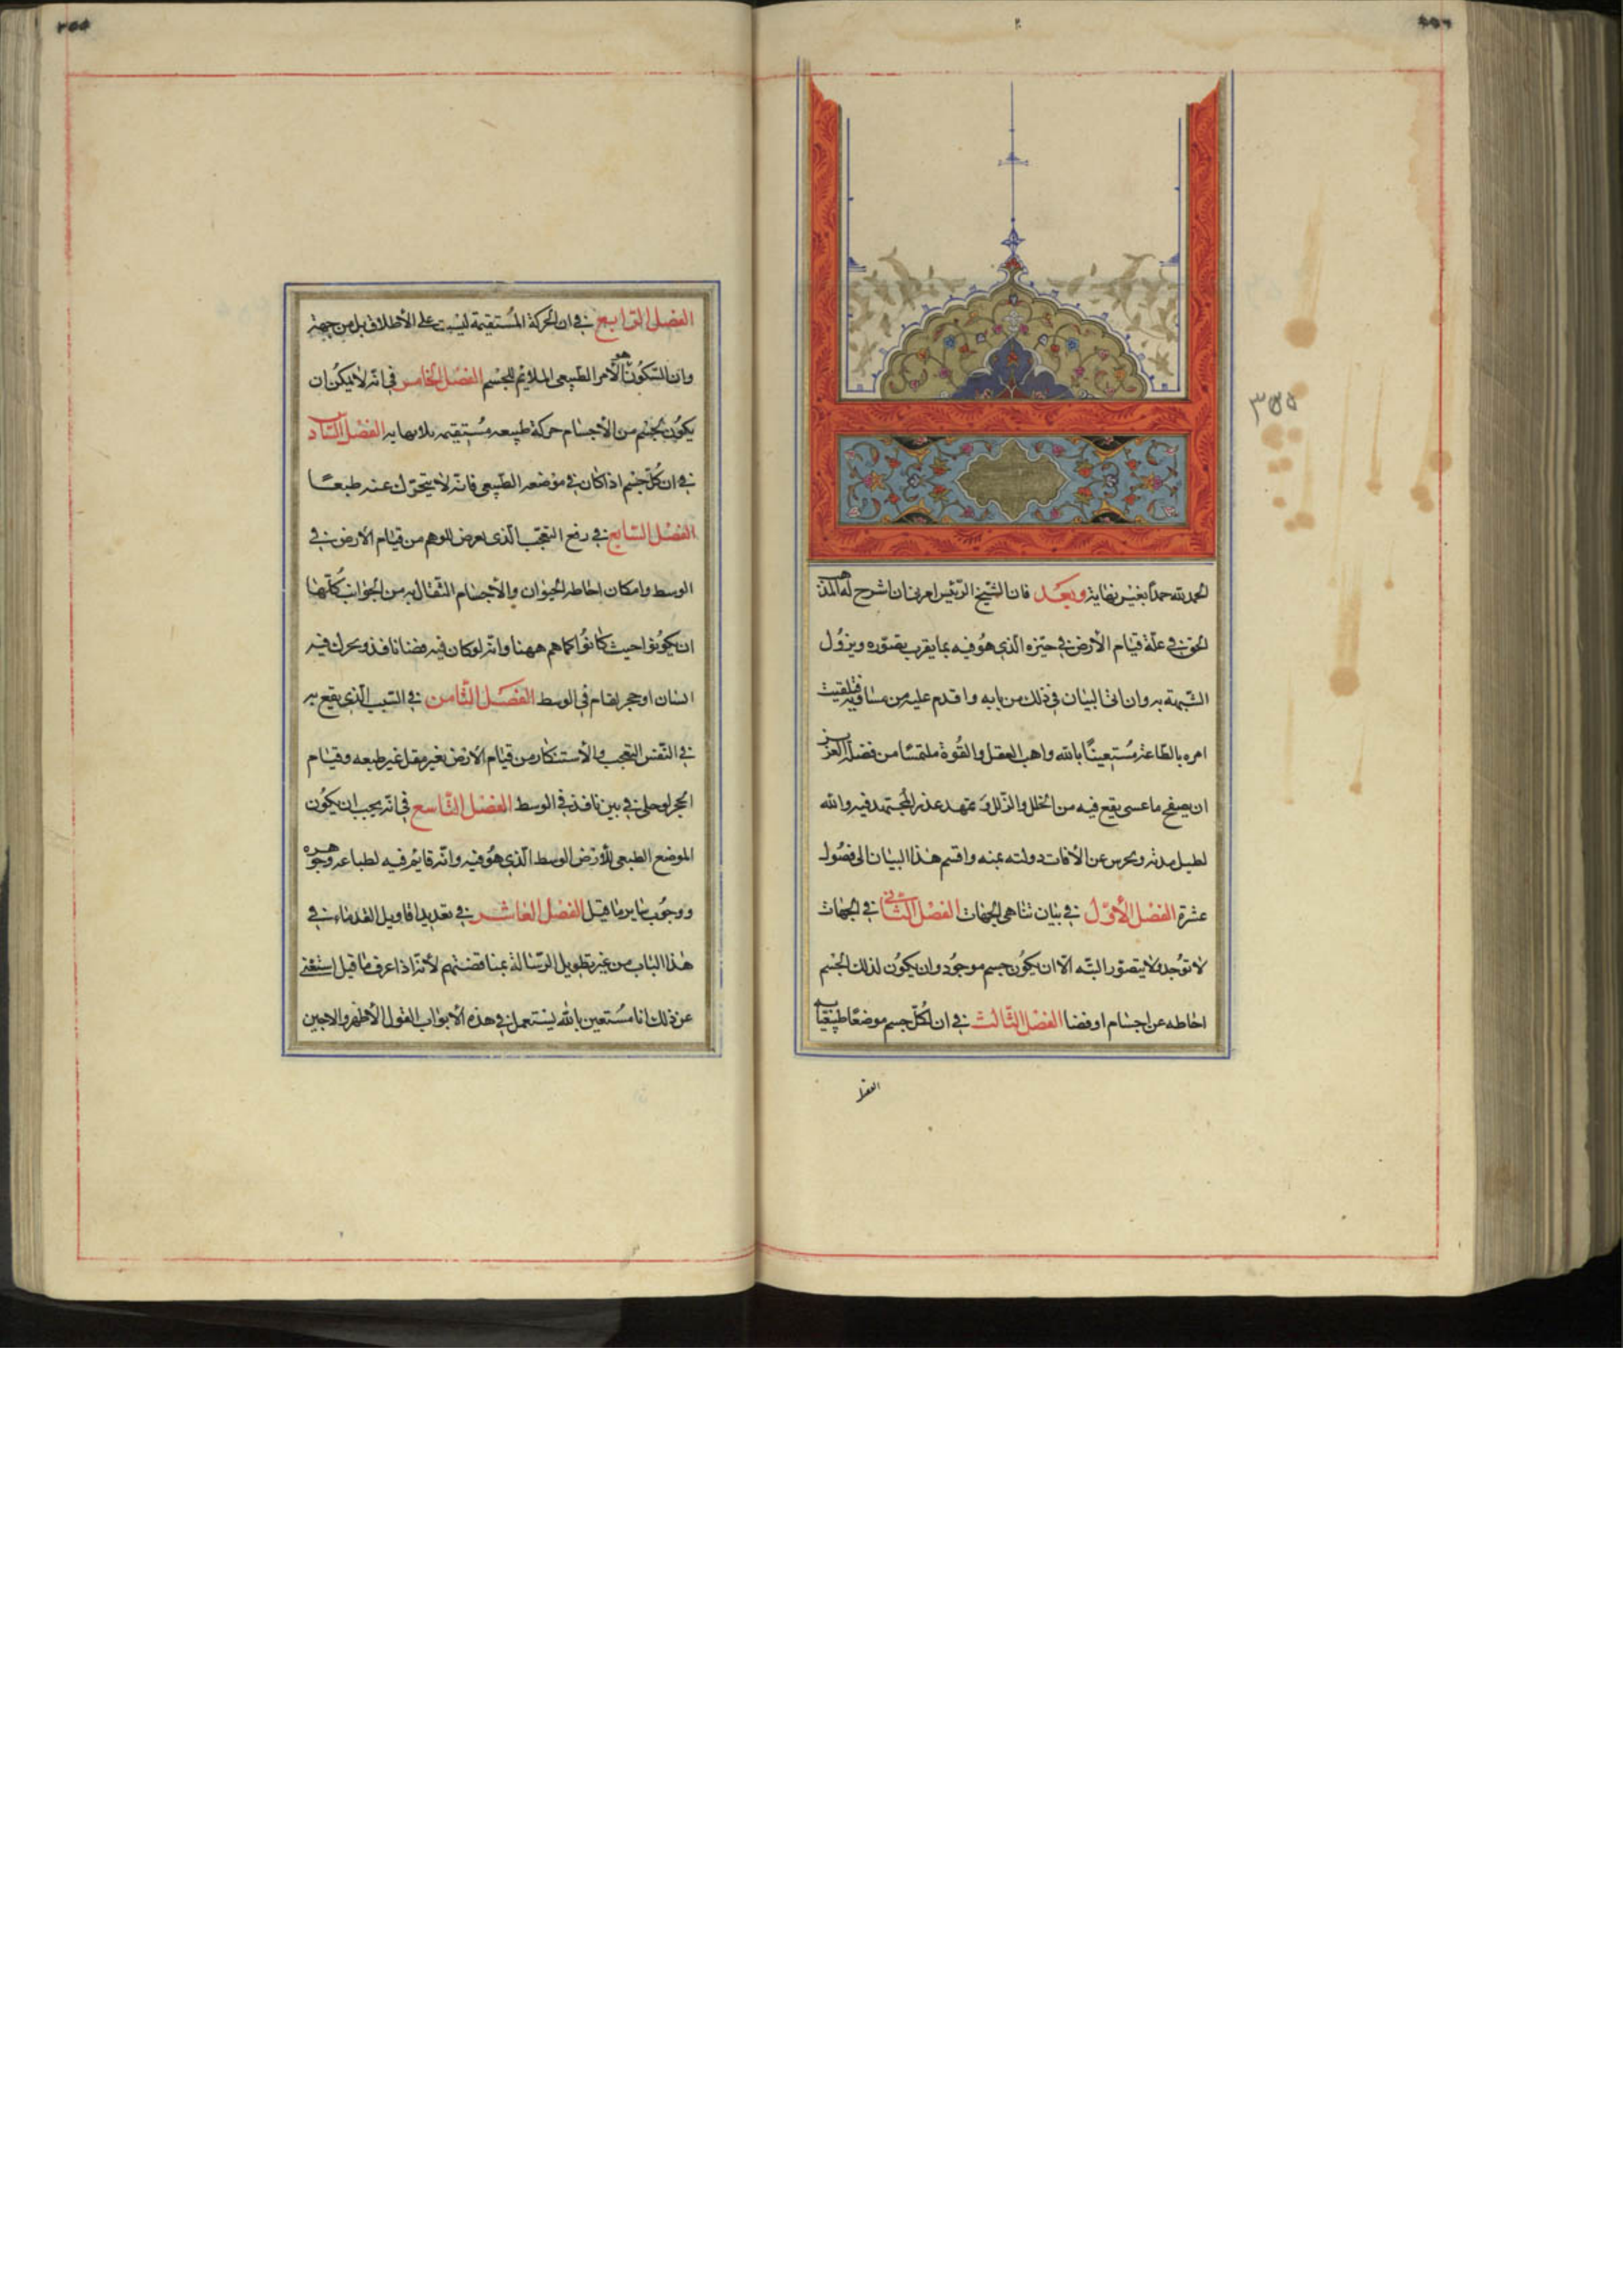 الحمد لله حمدا بغير نهاية وبعد فان الشيخ الرئيس امرنى ان اشرح له المذهب
الحق فى علة قيام الأرض فى حيزه الذى هو فيه بما يقرب بصوره ويزول
الشبهة به وان اتى البيان فى ذلك من بابه واقدم عليه من مساقه فتلقيت
امره بالطاعة مستعينا بالله واهب العقل والقوة ملتمسا من فضله العزيز
ان يصفح ما عسى يقع فيه من الخلل والزلل و يمهد عذر المجتهد فيه والله
لطيل مدته ويحرس عن الأفات دولته بمنه واقسم هذا البيان الى فصول
عشرة الفصل الأول فى بيان تناهى الجهات الفصل الثانى فى الجهات
لا توجد ولا يتصور البته الا ان يكون جسم موجود وان يكون لذلك الجسم
احاطه عن اجسام او فضا الفصل الثالث فى ان لكل جسم موضعا طبيعيا
الفصل الرابع فى ان الحركة المستقيمة ليست على الأطلاق بل من جهة
وان السكون هو الأمر الطبيعى الملايم للجسم الفصل الخامس فى انه لا يمكن ان
يكون لجسم من الأجسام حركة طبيعه مستقيمه بلا نهايه الفصل السادس
فى ان كل جسم اذا كان فى موضعه الطبيعى فانه لا يتحرك عنه طبعا
الفصل السابع فى رفع التعجب الذى يعرض للوهم من قيام الأرض فى
الوسط وامكان احاطه الحيوان والأجسام الثقال به من الجوانب كلها
ان يكونوا حيث كانوا كما هم ههنا وانه لو كان فيه فضا نافذ و تحرك فيه
انسان او حجر لقام فى الوسط الفصل الثامن فى السبب الذى يقع به
فى النفس التعجب والأستنكار من قيام الأرض بغير مقل غير طبعه وقيام
الحجر لو خلى فى بين نافذ فى الوسط الفصل التاسع فى انه يجب ان يكون
الموضع الطبيعى للأرض الوسط الذى هو فيه وانه قايم فيه لطباعه وجوهره
ووجوب ما ير ما قيل الفصل العاشر فى تعديد اقاويل القدماء فى
هذا الباب من غير تطويل الرسالة بمناقضتهم لأنه اذا عرف ما قيل استغنى
عن ذلك انا مستعين بالله يستعمل فى هذه الأبواب القول الأظهر والابين
٣٥٥